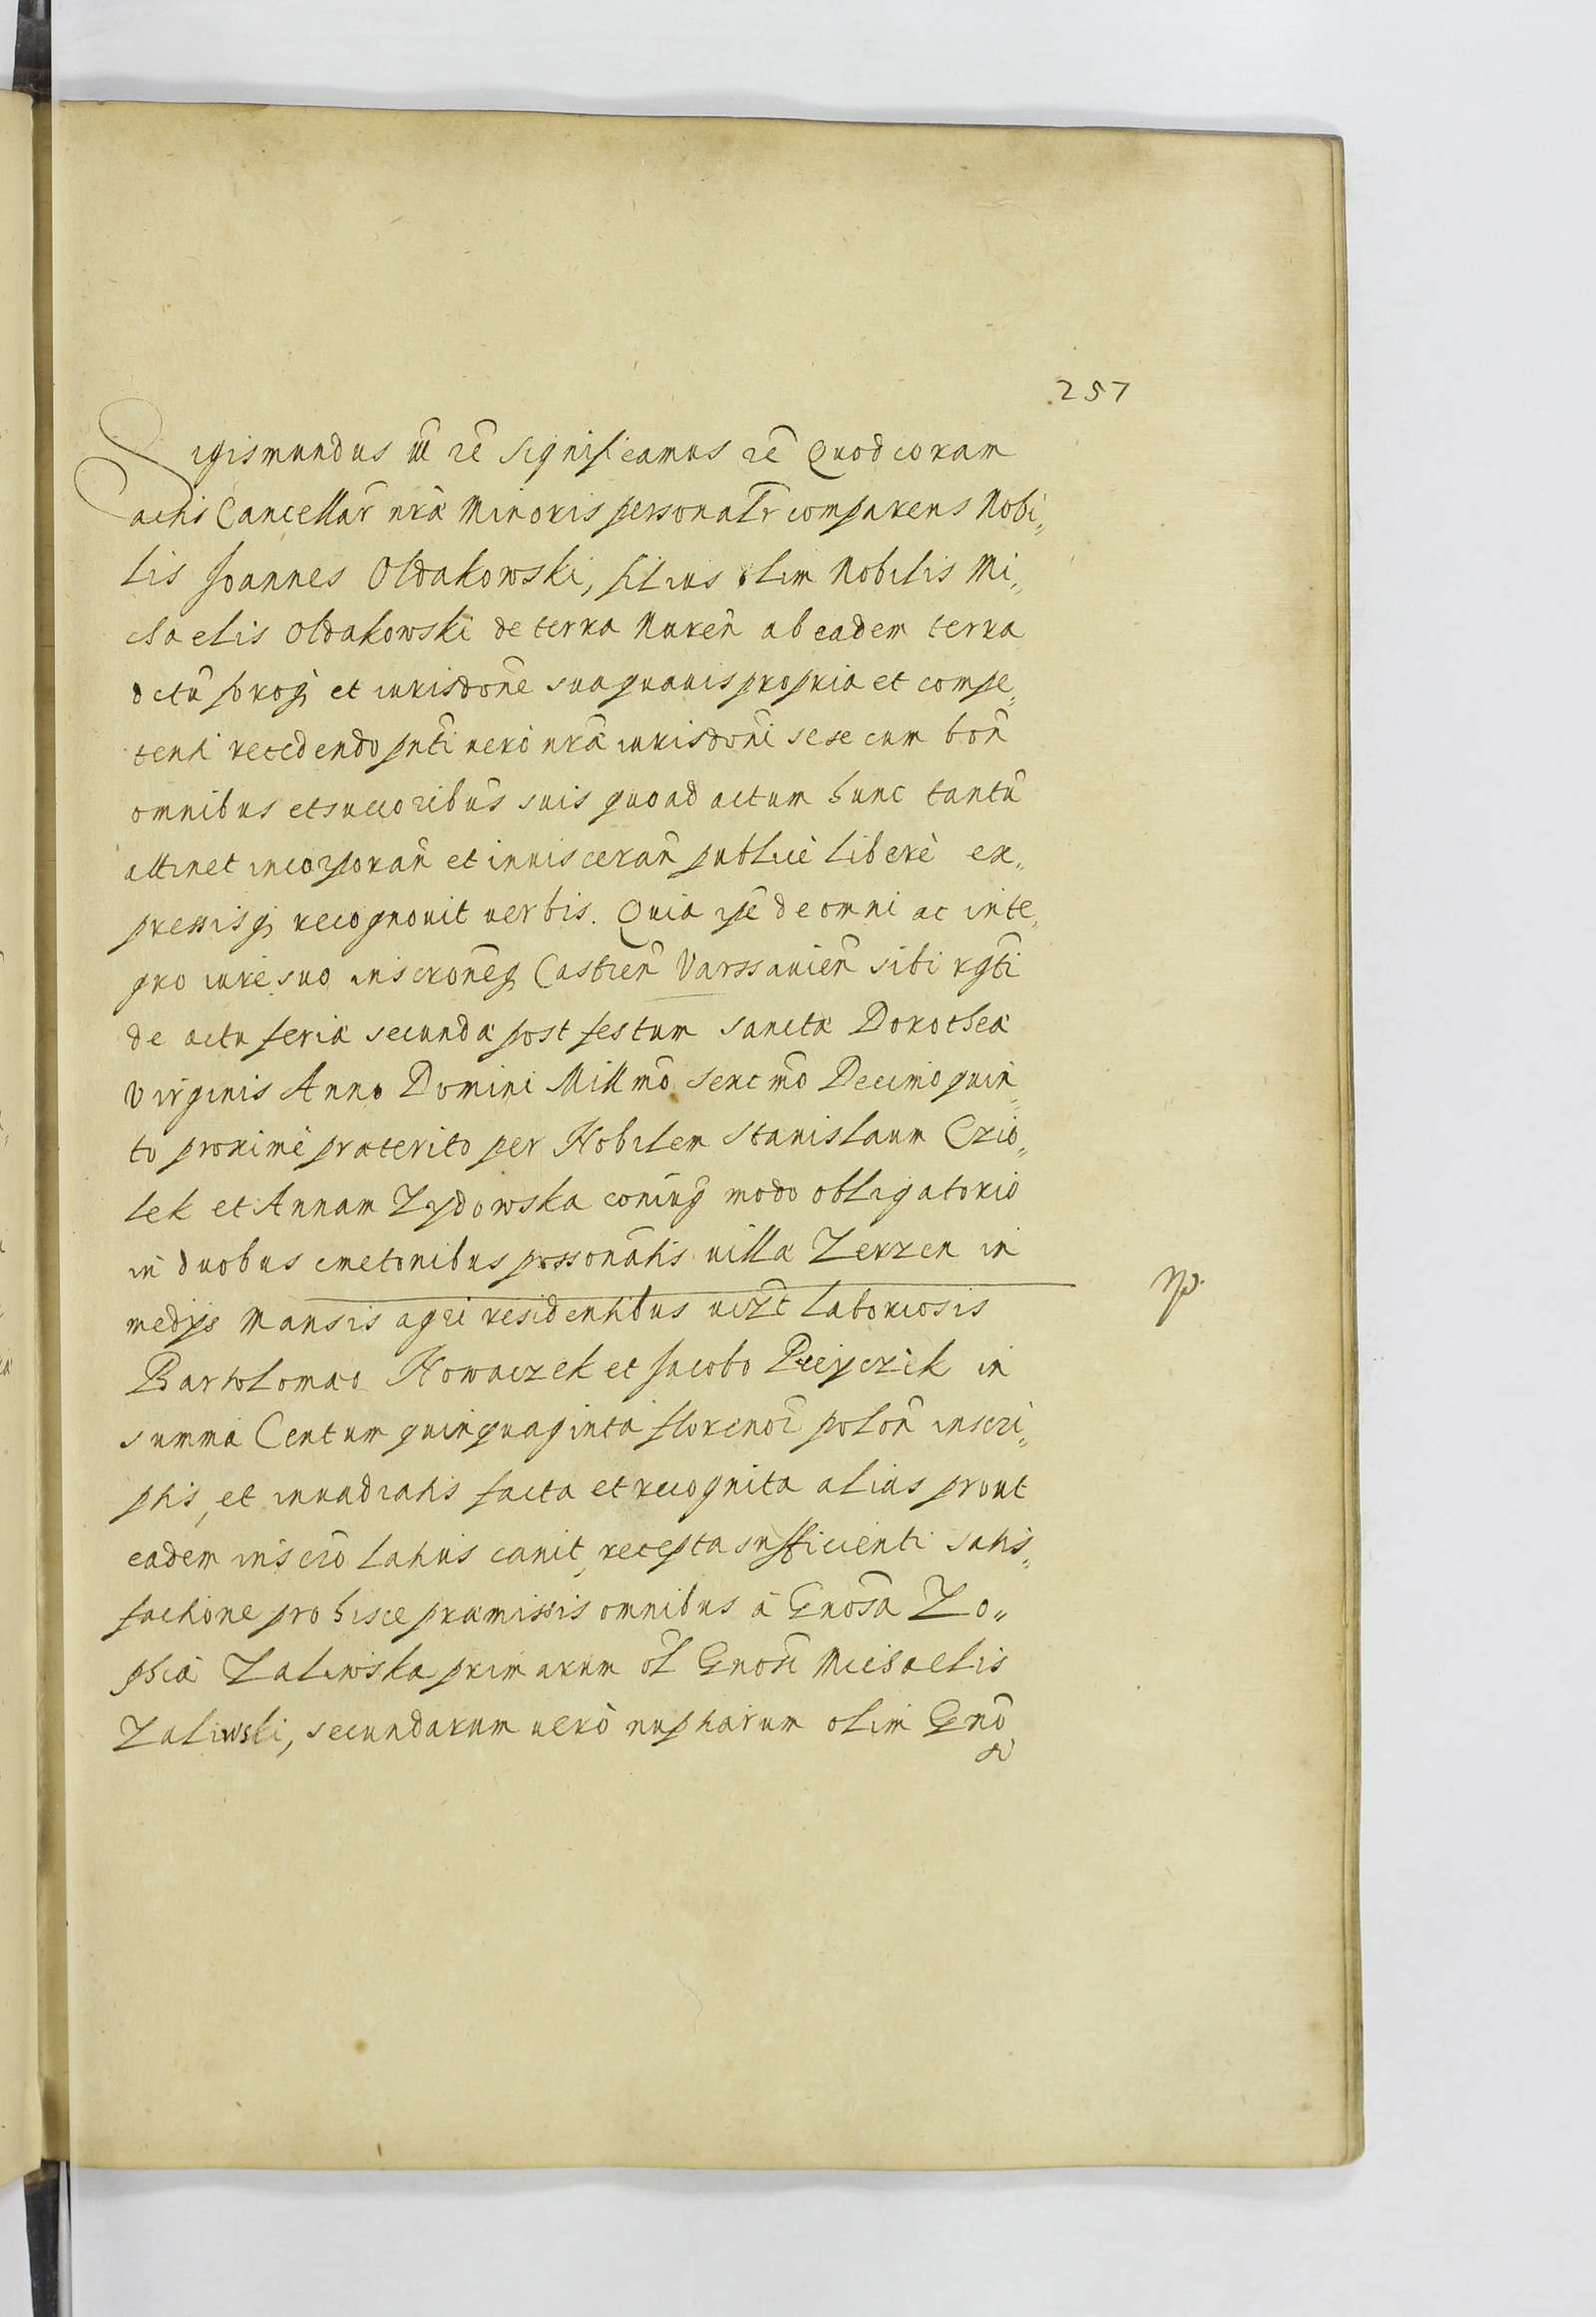 257
Sigismundus III rē significamus rē Quod coram
actis Cancellar̄ nrã Minoris personalr̄ comparens Nobi„
lis Joannes Oldakowski, filius olim Nobilis Mi„
chaelis Oldakowski de terra Nuren̄ ab eadem terra
dctū̃ proqȝ et iurisdōne sua quauis propria et compe„
tenti recedendo pn̄ti uerò nrã iurisdōni sese cum bon̄
omnibus et succoribus̄ suis quo ad actum hunc tantū
attinet incorporan̄ et inuisceran̄ publicè liberè ex„
pressisqȝ recognouit uerbis. Quia ipē de omni ac inte„
gro iure suo inscrōneqȝ Castren̄ Varssauien̄ sibi rgt̄i
de actu feria secunda post festum sancta Dorothea
Virginis Anno Domini Millmō sexcmō Decimo quin„
to proximè praeterito per Nobilem Stanislaum Czio„
lek et Annam Zydowska coniug̃ modo obligatorio
in duobus cmetonibus possonātis uilla Zerzen in
medys Mansis agri residentibus uizt̄ laboriosis
Bartolomaeo Nowaczek et Jacobo in
summa Centum quinquaginta florenor̄ polon̄ inscri„
ptis, et inuadiatis facta et recognita alias prout
eadem inscrō latius canit, recepta sufficienti satis„
factione pro hisce praemissis omnibus à Gnosā Zo„
phia Zaliwska primarum ol̄ Gnosi Michaelis
Zaliwski, secundarum uerò nuptiarum olim Gnō
si